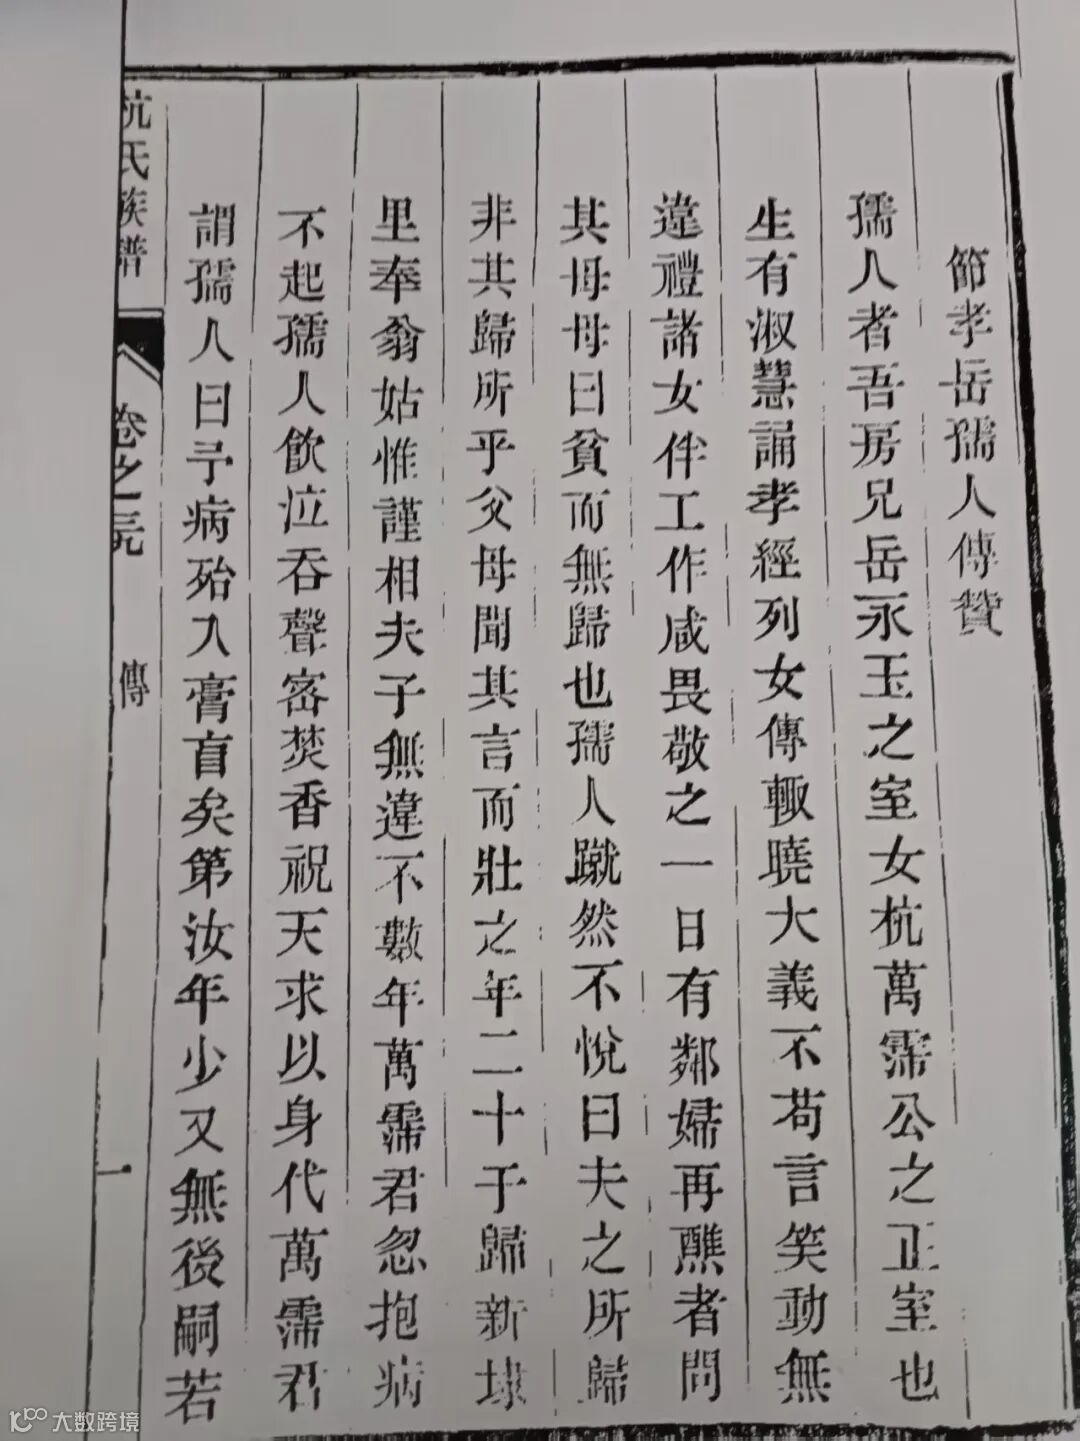 節孝岳孺人傳贊
孺人者吾房兄岳永玉之室女杭萬霈公之正室也
生有淑慧誦孝經列女傳輙曉大義不苟言笑動無
違禮諸女伴工作咸畏敬之一日有鄰婦再醮者問
其母母曰貧而無歸也孺人蹴然不悅曰夫之所歸
非其歸所乎父母聞其言而壯之年二十于歸新埭
里奉翁姑惟謹相夫子無違不數年萬霈君忽抱病
不起孺人飲泣吞聲密焚香祝天求以身代萬霈君
謂孺人曰予病殆入膏盲矣第汝年少又無後嗣若
杭氏族譜
卷之三九
傳
一
大数跨境